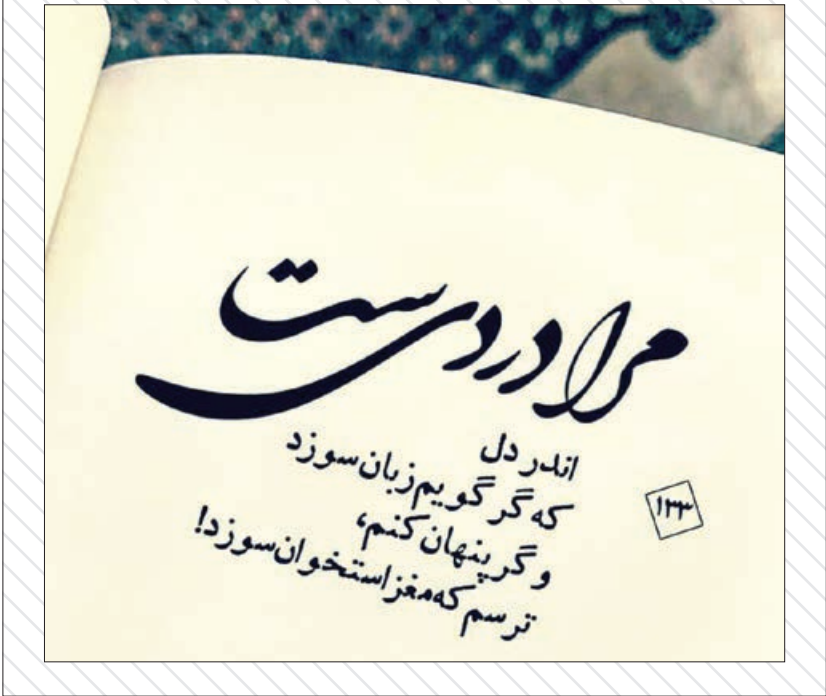 مرا دردی ست
اندر دل
که گر گویم زبان سوزد
۱۳۳
و گر پنهان کنم،
ترسم که مغز استخوان سوزد!